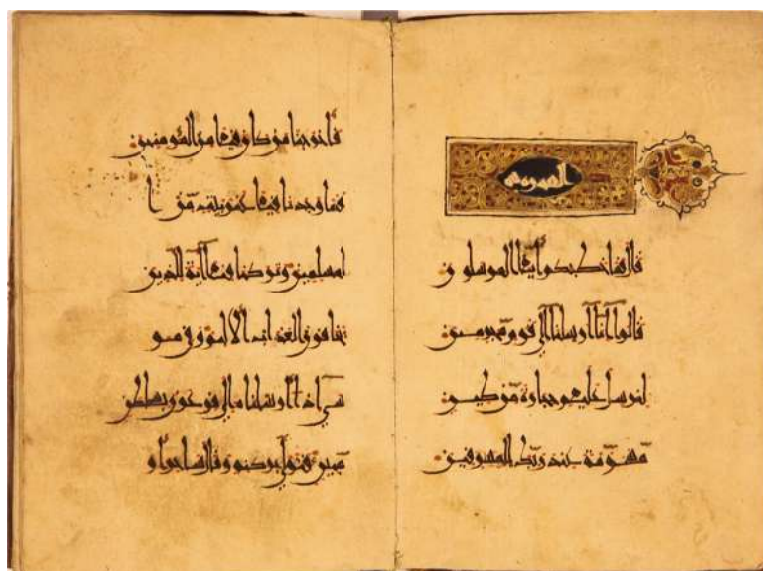 قال فما خطبكم أيها المرسلون
قالوا إنا أرسلنا إلى قوم مجرمين
لنرسل عليهم حجارة من طين
مسومة عند ربك للمسرفين
فأخرجنا من كان فيها من المؤمنين
فما وجدنا فيها غير بيت من ا
لمسلمين وتركنا فيها آية للذين
يخافون العذاب الأليم وفي مو
سى إذ أرسلناه إلى فرعون بسلطن
مبين فتولى بركنه وقال ساحر أو